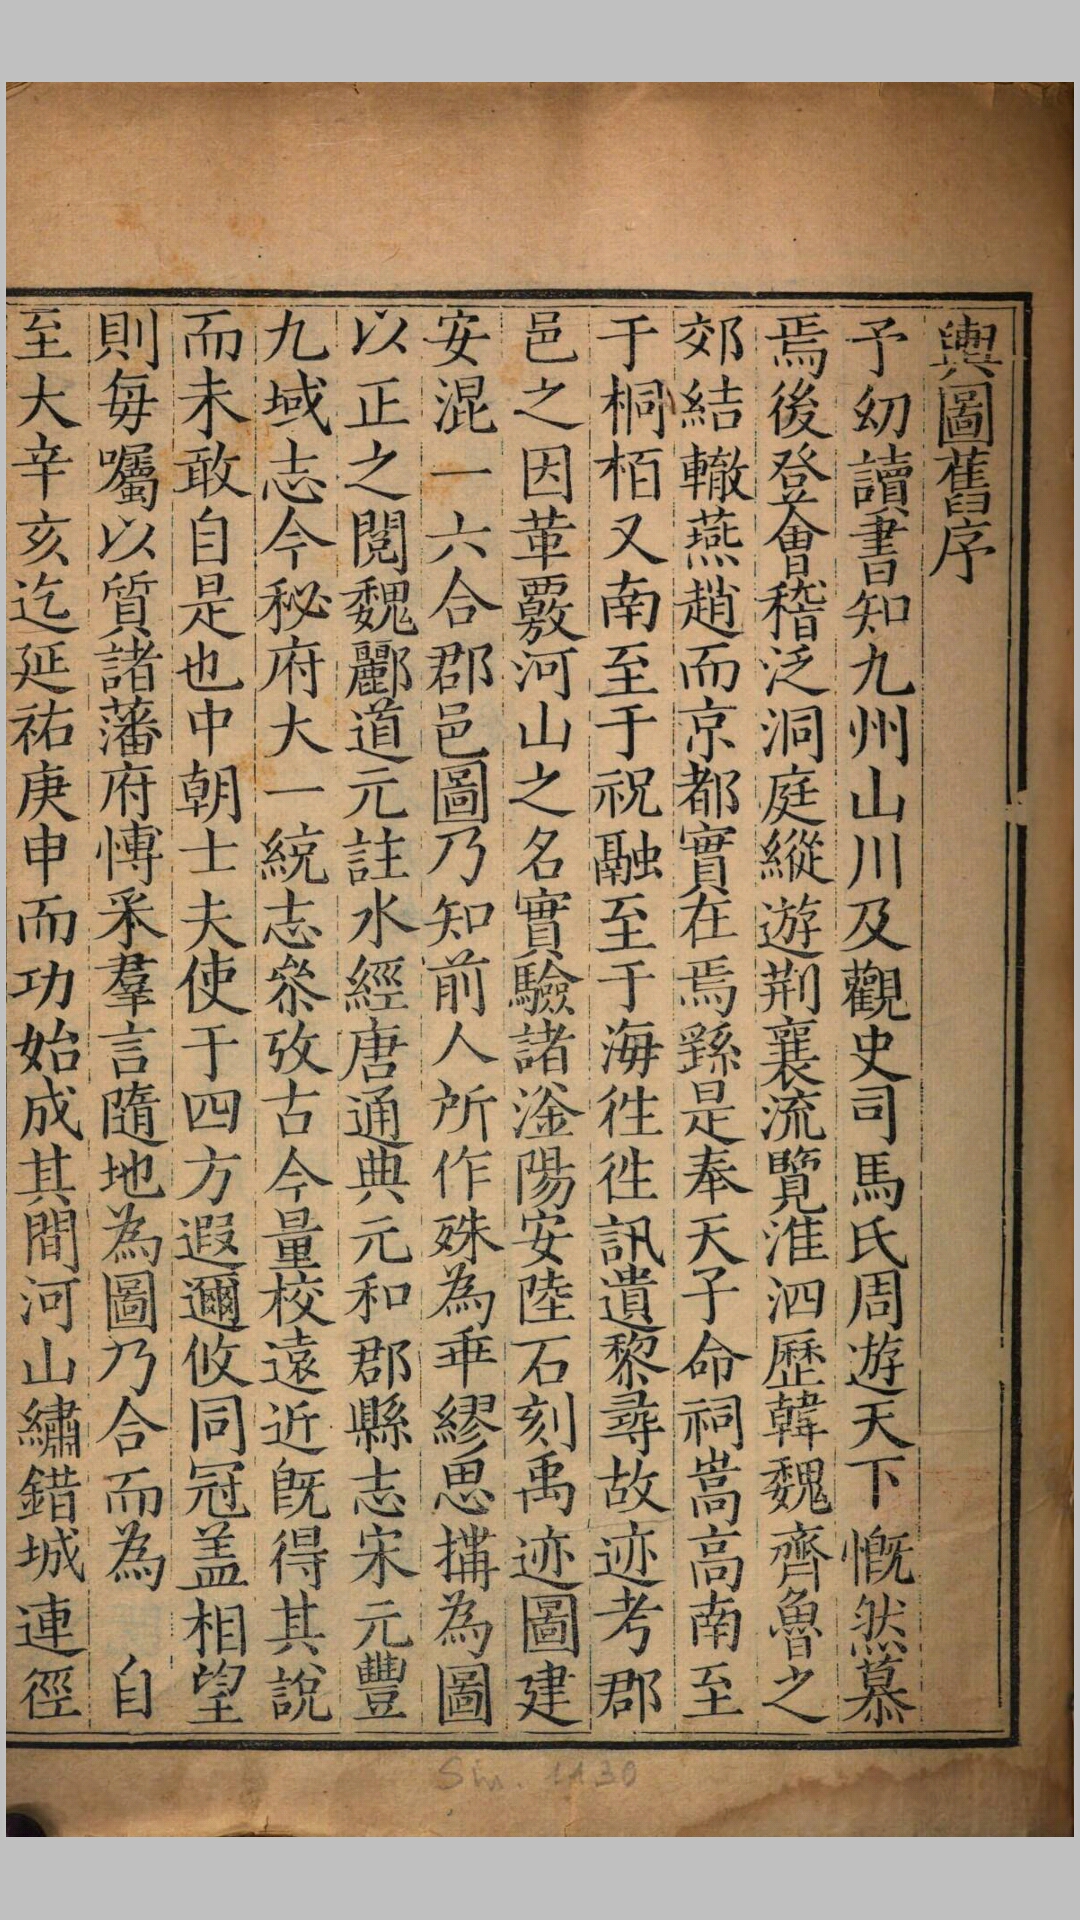 輿圖舊序
予幼讀書知九州山川及觀史司馬氏周遊天下慨然慕
焉後登會稽泛洞庭縱遊荆襄流覽淮泗歷韓魏齊魯之
郊結轍燕趙而京都實在焉繇是奉天子命祠嵩高南至
于桐栢又南至于祝融至于海徃徃訊遺黎尋故迹考郡
邑之因革覈河山之名實驗諸滏陽安陸石刻禹迹圖建
安混一六合郡邑圖乃知前人所作殊為乖繆思搆為圖
以正之閱魏酈道元註水經唐通典元和郡縣志宋元豐
九域志今秘府大一統志叅攷古今量校遠近旣得其說
而未敢自是也中朝士夫使于四方遐邇攸同冠盖相望
則每囑以質諸藩府愽釆羣言隨地為圖乃合而為 自
至大辛亥迄延祐庚申而功始成其間河山繡錯城連徑
Sin. 1130